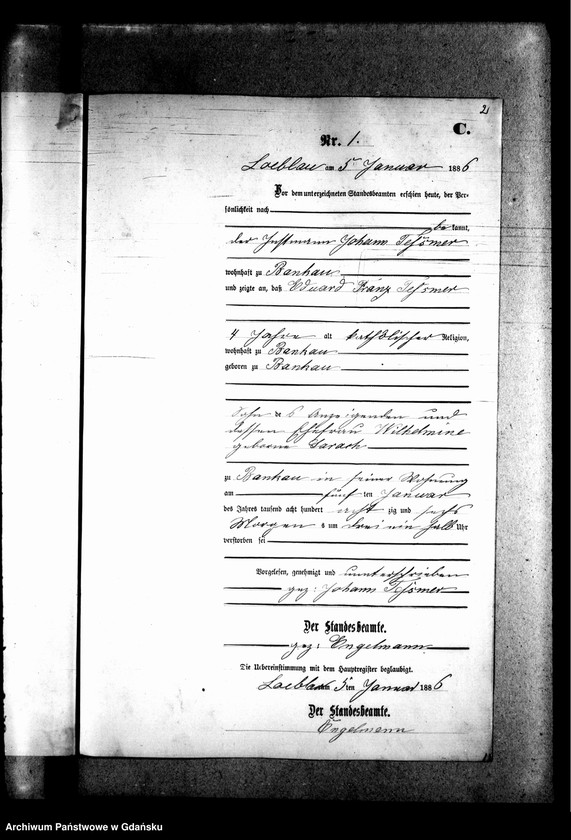 2
C.
Nr. 1.
Loeblau am 5 Januar 1886
Vor dem unterzeichneten Standesbeamten erschien heute, der Per-
sönlichkeit nach
be kannt,
der Instmann Johann Teßmer
wohnhaft zu Bankau
und zeigte an, daß Eduard Franz Teßmer
4 Jahre alt katholischer Religion,
wohnhaft zu Bankau
geboren zu Bankau
Sohn des Anzeigenden und
dessen Ehefrau Wilhelmine
geborene
zu Bankau in seiner Wohnung
am fünf ten Januar
des Jahres tausend acht hundert acht zig und sechs
Morgens um drei ein halb Uhr
verstorben sei
Vorgelesen, genehmigt und unterschrieben
gez: Johann Teßmer
Der Standesbeamte.
gez: Engelmann
Die Uebereinstimmung mit dem Hauptregister beglaubigt.
Loeblau am 5 ten Januar 1886
Der Standesbeamte.
Engelmann
Archiwum Państwowe w Gdańsku